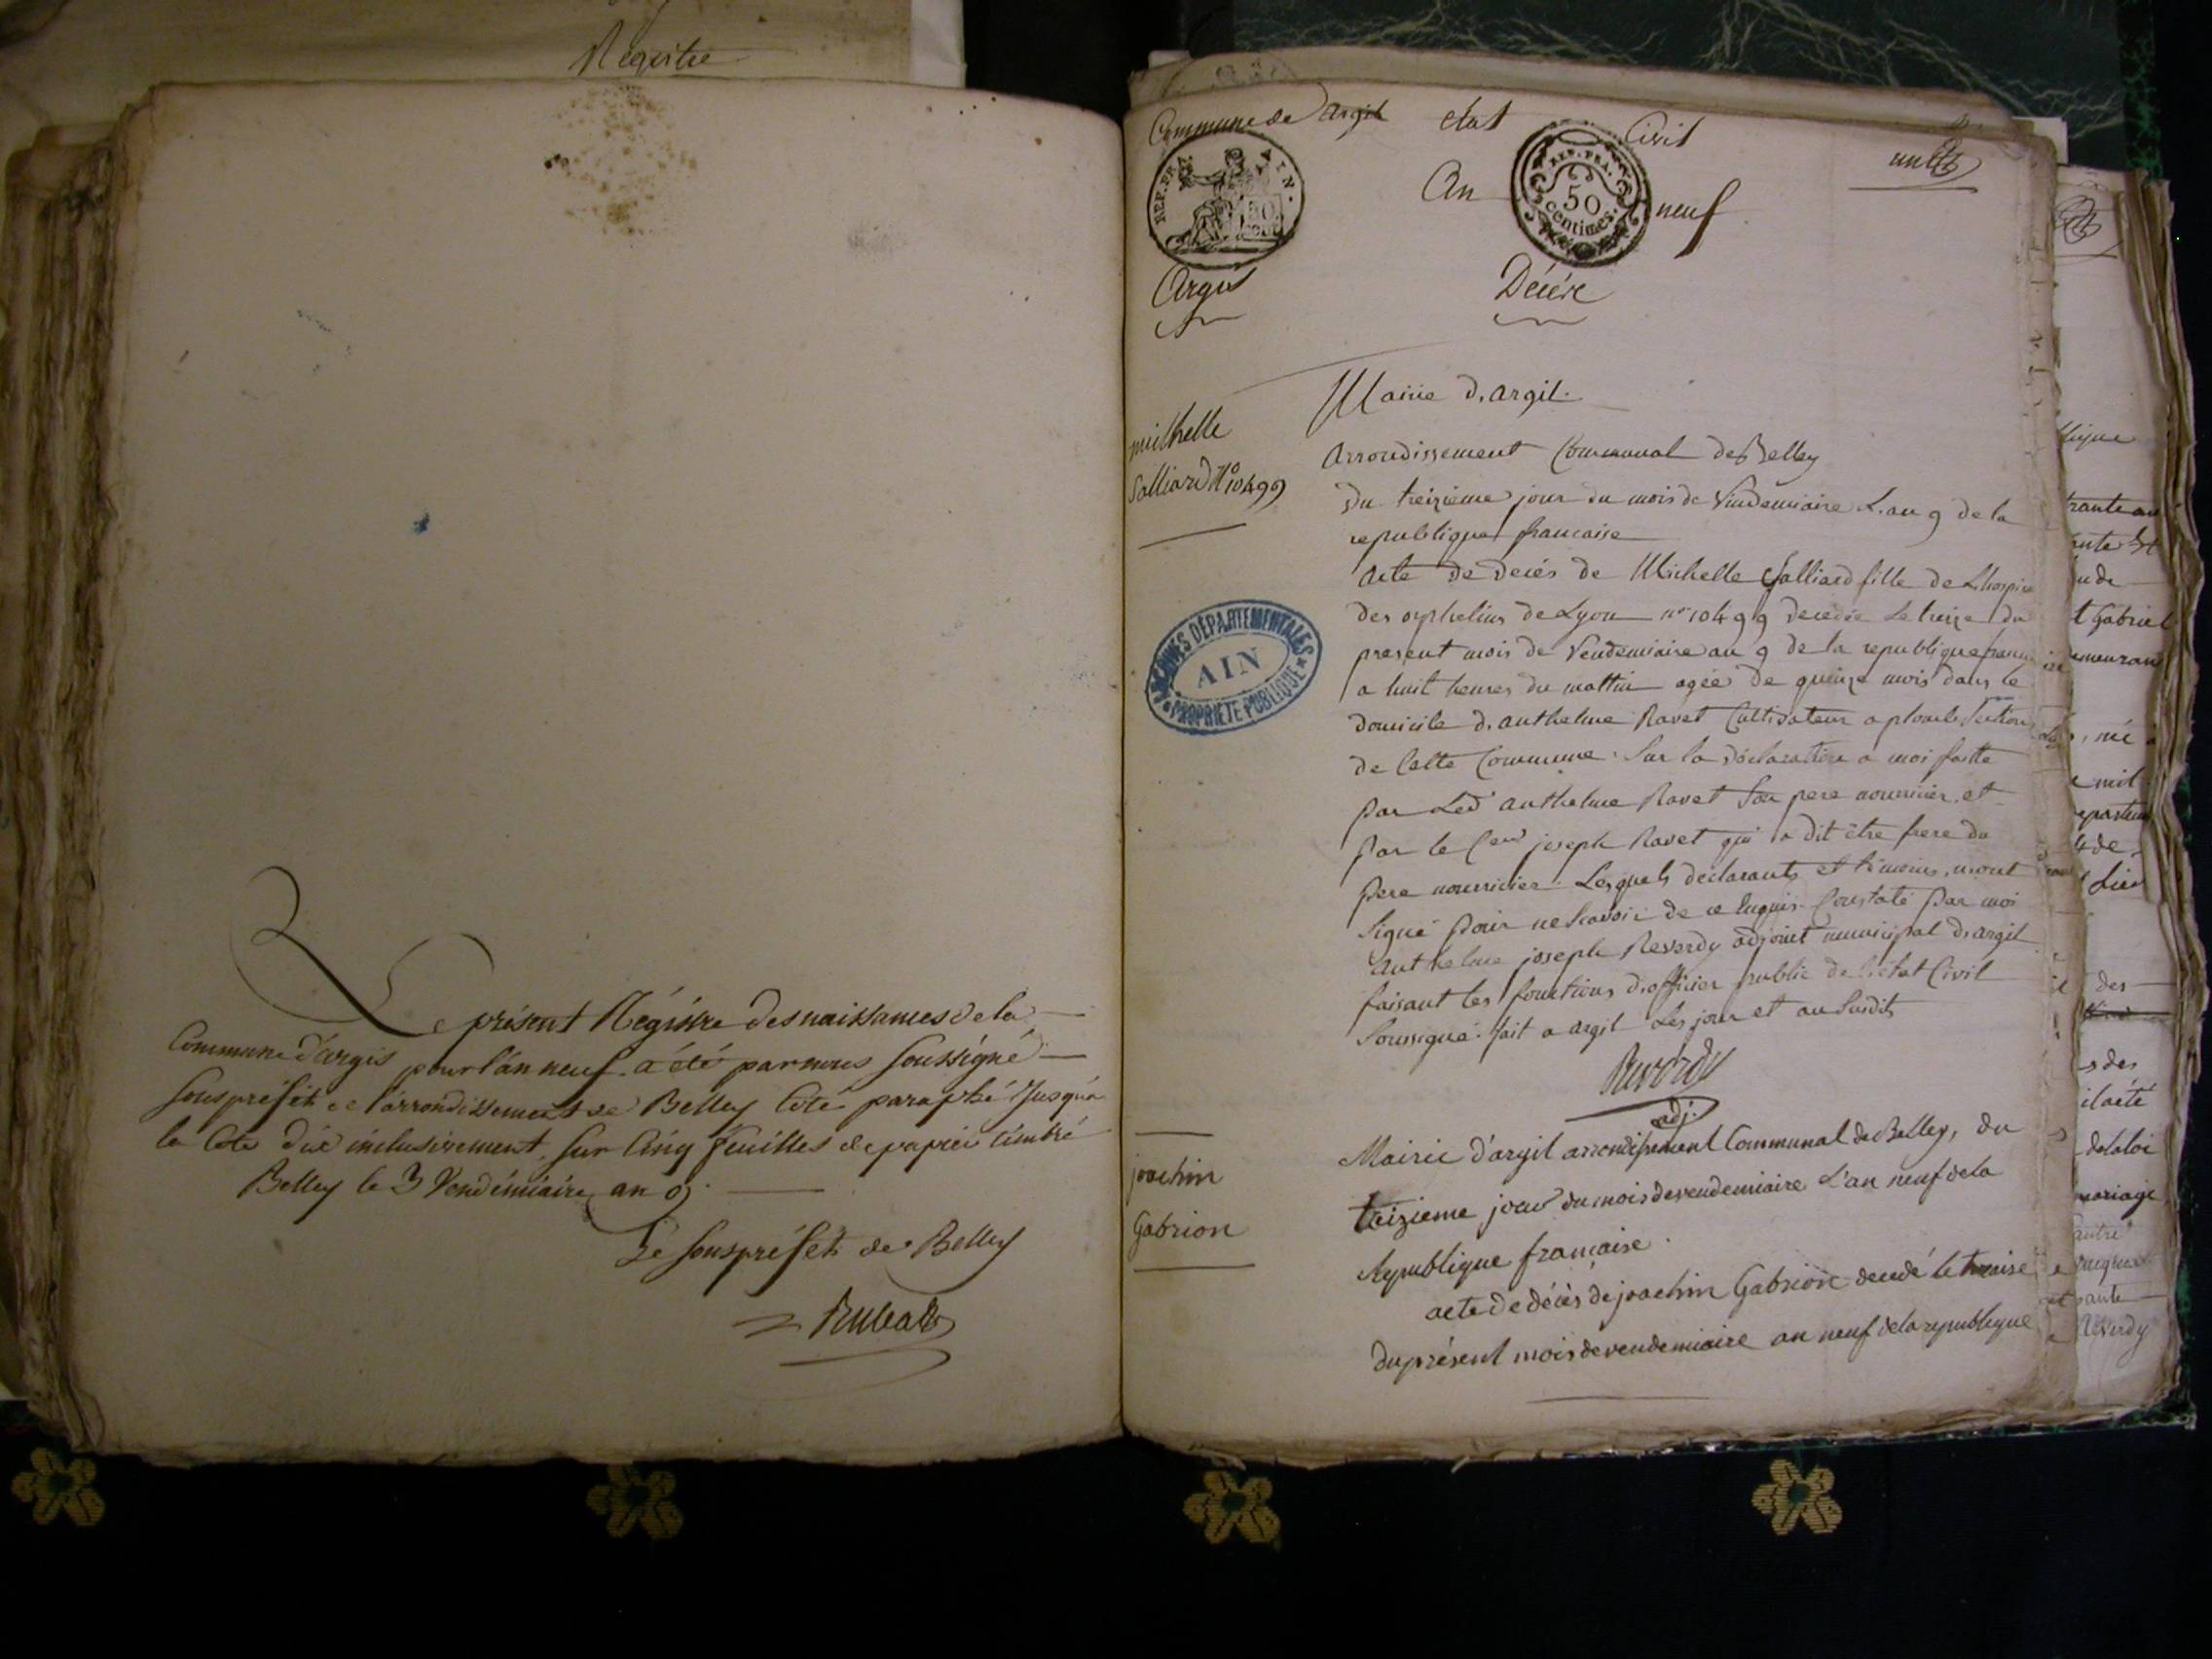 Registre
Le présent Régistre des naissances de la
Commune d'argis pour l'an neuf a été par nous soussigné
souspréfét de l'arrondissement de Belley Coté paraphé Jusqu'a
la Cote dix inclusivement, sur Cinq feuilles de papier timbré
Belley le 3 Vendémiaire an 9.
Le souspréfét de Belley
Commune de argil etat Civil
REP. FRA. AIN.
REP. FRA.
50
centimes.
An neuf
Argis
Décés
Mairie d'argil.
michelle
Salliard N° 10499
Arrondissement Communal de Belley
Du treizieme jour du mois de Vendemiaire L'an 9 de la
republique francaise
Acte de decés de Michelle Salliard fille de L'hospice
des orphelins de Lyon n° 10499 decedée Le treize du
present mois de Vendemiaire an 9 de la republique
a huit heures du mattin agée de quinze mois dans le
domicile d'anthelme Ravet Cultivateur a section
de Cette Commune. Sur la déclaration a moi faitte
par Led anthelme Ravet Son pere nourricier et
par le Cen joseph Ravet qui a dit être frere du
pere nourricier. Lesquels déclarants et témoins, n'ont
signé pour ne Scavoir de ce Enquis. Constaté par moi
Anthelme joseph Reverdy adjoint municipal d'argil
faisant les fonctions d'officier public de l'etat Civil
Soussigné. fait a argil Les jour et an Susdits
Reverdy
adj.
ARCHIVES DÉPARTEMENTALES
AIN
PROPRIÉTÉ PUBLIQUE
joachin
Gabrion
Mairie d'argil arrondissement Communal de Belley, du
treizieme jour du mois de vendemiaire L'an neuf de la
Republique francaise.
acte de décès de joachin Gabrion decedé le treize
du présent mois de vendemiaire an neuf de la republique
t Gabriel
mil
de
des
s des
de la loi
mariage
Reverdy